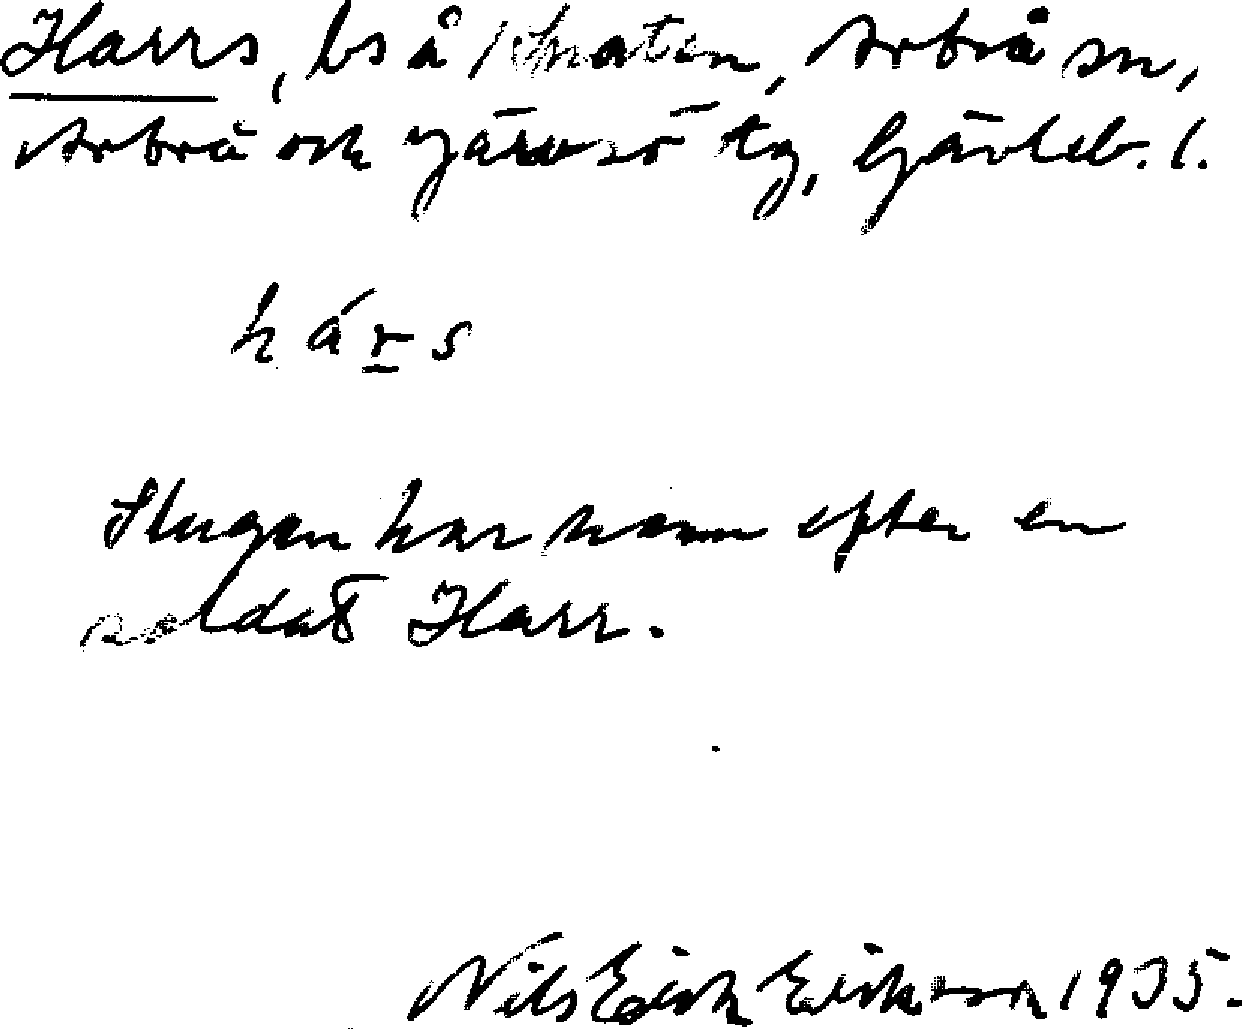 Harrs, bs å Knaten, Arbrå sn,
Arbrå och Järvsö tg, Gävleb. l.
hárs
Stugan har namn efter en
soldat Harr.
Nils Erik Erikson 1935.